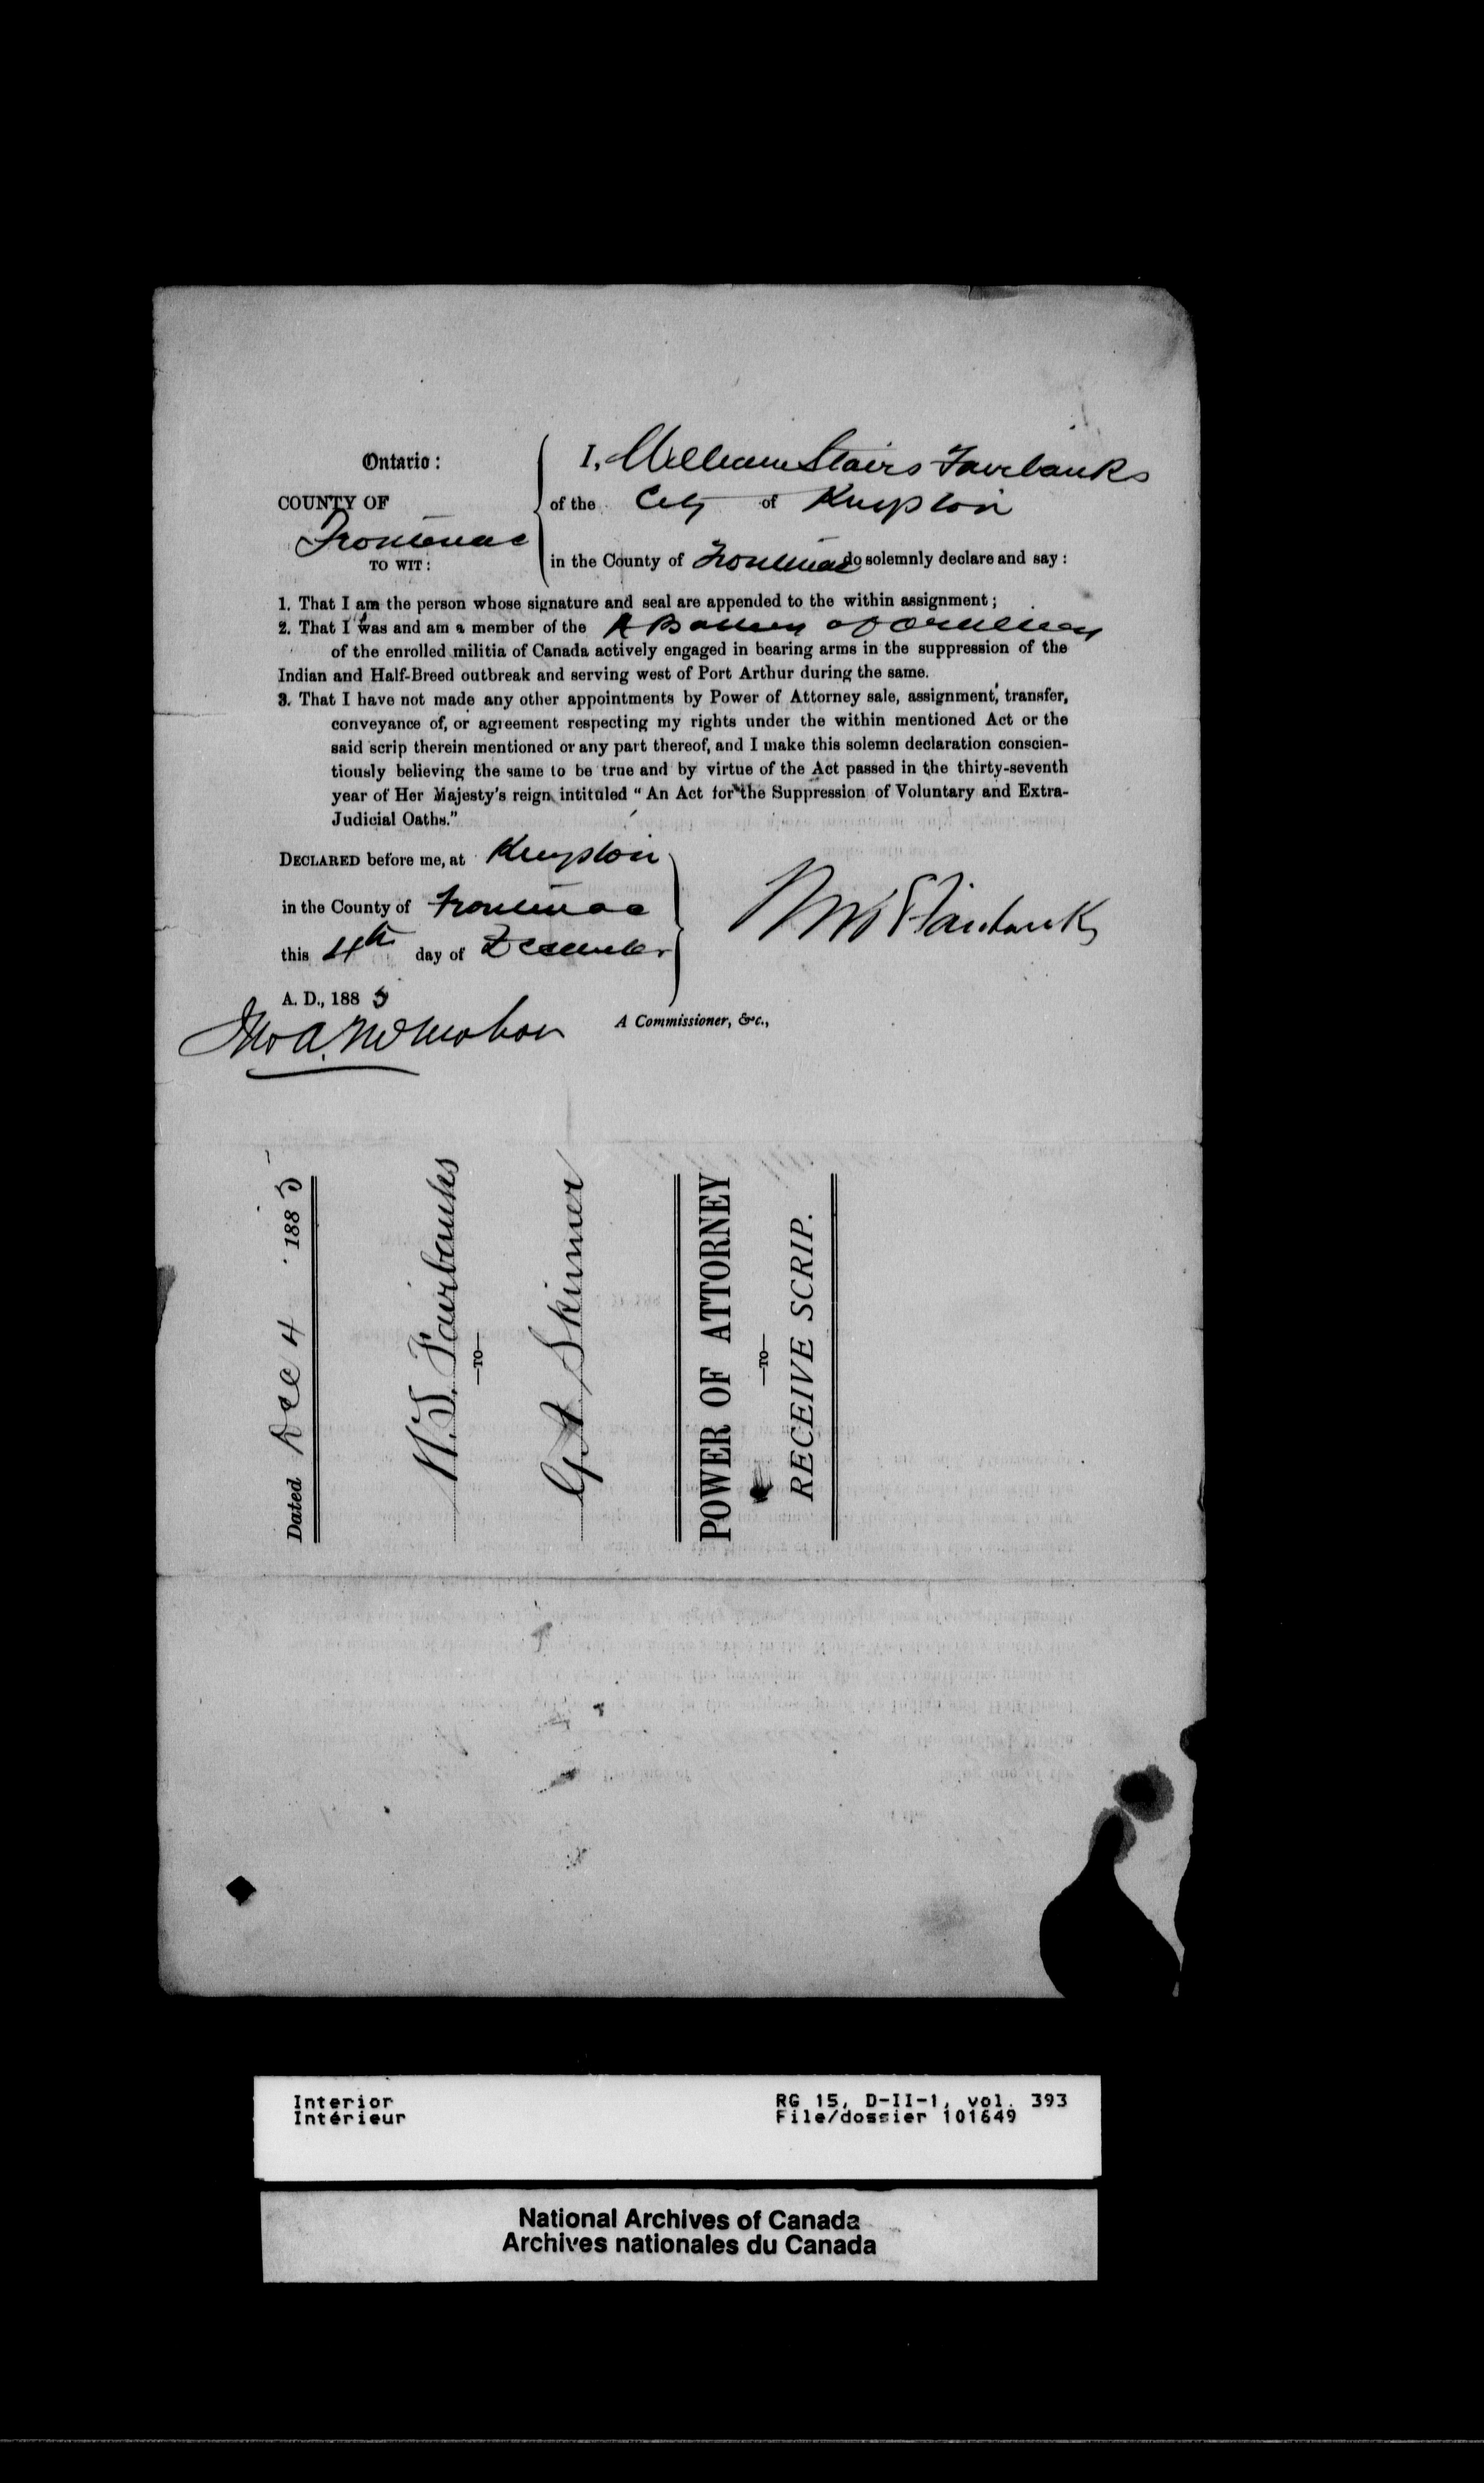 Ontario :
COUNTY OF
Frontenac
TO WIT :
I, William Stairs Fairbanks
of the City of Kingston
in the County of Frontenac do solemnly declare and say :
1. That I am the person whose signature and seal are appended to the within assignment ;
2. That I was and am a member of the A Battery of Artillery
of the enrolled militia of Canada actively engaged in bearing arms in the suppression of the
Indian and Half-Breed outbreak and serving west of Port Arthur during the same.
3. That I have not made any other appointments by Power of Attorney sale, assignment, transfer,
conveyance of, or agreement respecting my rights under the within mentioned Act or the
said scrip therein mentioned or any part thereof, and I make this solemn declaration conscien-
tiously believing the same to be true and by virtue of the Act passed in the thirty-seventh
year of Her Majesty's reign intituled “ An Act for the Suppression of Voluntary and Extra-
Judicial Oaths.”
DECLARED before me, at Kingston
in the County of Frontenac
this 4th day of December
A. D., 1885
Wm S Fairbanks
Jno A. McMahon
A Commissioner, &c.,
Dated Dec 4 1885
W. S. Fairbanks
—TO—
G A Skinner
POWER OF ATTORNEY
—TO—
RECEIVE SCRIP.
Interior
Intérieur
RG 15, D-II-1, vol. 393
File/dossier 101649
National Archives of Canada
Archives nationales du Canada